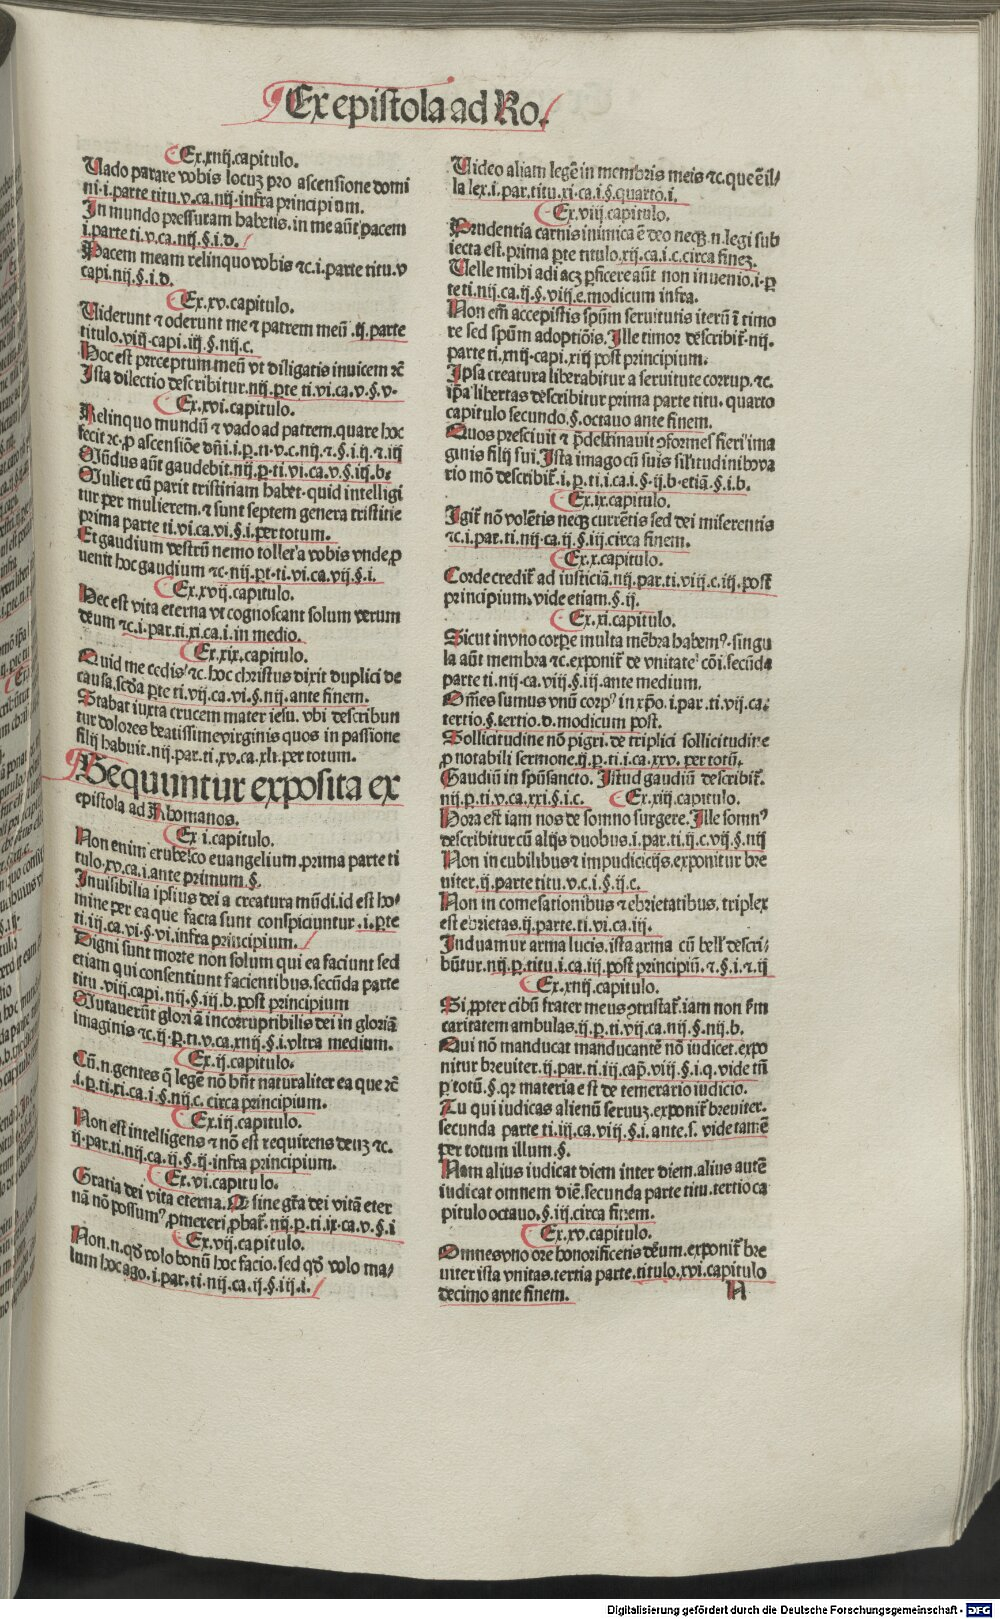 Ex epistola ad Ro.
Ex.xiiij.capitulo.
Vado parare vobis locuʒ pro ascensione domi
ni.i.parte titu.v.ca.iiij.infra principium.
In mundo pressuram habetis.in me aūt pacem
i.parte ti.v.ca.iiij.§.i.d.
Pacem meam relinquo vobis ⁊c.i.parte titu.v
capi.iiij.§.i.d.
Ex.xv.capitulo.
Viderunt ⁊ oderunt me ⁊ patrem meū.ij.parte
titulo.viij.capi.iij.§.iiij.c.
Hoc est preceptum meū vt diligatis inuicem ⁊c̄
Ista dilectio describitur.iiij.pte ti.vi.ca.v.§.v.
Ex.xvi.capitulo.
Relinquo mundū ⁊ vado ad patrem.quare hoc
fecit ⁊c.ꝓ ascensiōe dn̄i.i.p.ti.v.c.iiij.⁊.§.i.ij.⁊.iij
Mūdus aūt gaudebit.iiij.p.ti.vi.ca.v.§.iij.b.
Mulier cū parit tristitiam habet.quid intelligi
tur per mulierem.⁊ sunt septem genera tristitie
prima parte ti.vi.ca.vi.§.i.per totum.
Et gaudium vestrū nemo tollet a vobis vnde ꝓ
uenit hoc gaudium ⁊c.iiij.pt.ti.vi.ca.vij.§.i.
Ex.xvij.capitulo.
Hec est vita eterna vt cognoscant solum verum
deum ⁊c.i.par.ti.xi.ca.i.in medio.
Ex.xix.capitulo.
Quid me cedis ⁊c.hoc christus dixit duplici de
causa.scd̄a p̄te ti.vij.ca.vi.§.iiij.ante finem.
Stabat iuxta crucem mater iesu.vbi describun
tur dolores beatissime virginis quos in passione
filij habuit.iiij.par.ti.xv.ca.xli.per totum.
Sequuntur exposita ex
epistola ad Rhomanos.
Ex i.capitulo.
Non enim erubesco euangelium.prima parte ti
tulo.xv.ca.i.ante primum.§.
Inuisibilia ipsius dei a creatura mūdi.id est ho-
mine per ea que facta sunt conspiciuntur.i.pte
ti.iij.ca.vi.§.vi.infra principium.
Digni sunt morte non solum qui ea faciunt sed
etiam qui consentiunt facientibus.secūda parte
titu.viij.capi.iiij.§.iij.b.post principium
Mutauerūt gloriā incorruptibilis dei in gloriā
imaginis ⁊c.ij.p.ti.v.ca.xiiij.§.i.vltra medium.
Ex.ij.capitulo.
Cū.n.gentes q̄ legē nō hn̄t naturaliter ea que ⁊c̄
.i.p.ti.xi.ca.i.§.iiij.c.circa principium.
Ex.iij.capitulo.
Non est intelligens ⁊ nō est requirens deuʒ ⁊c.
ij.par.ti.iiij.ca.ij.§.ij.infra principium.
Ex.vi.capitulo.
Gratia dei vita eterna.Q sine gr̄a dei vitā eter
nā nō possumꝰ ꝓmereri ꝓbat̄.iiij.p.ti.ix.ca.v.§.i
Ex.vij.capitulo.
Non.n.qd̄ volo bonū hoc facio.sed qd̄ volo ma-
lum hoc ago.i.par.ti.iiij.ca.ij.§.iij.i.
Video aliam legē in membris meis ⁊c.que ē il-
la lex.i.par.titu.xi.ca.i.§.quarto.i.
Ex.viij.capitulo.
Prudentia carnis inimica ē deo neqʒ.n.legi sub
iecta est.prima p̄te titulo.xij.ca.i.c.circa fineʒ.
Velle mihi adiacʒ ꝑficere aūt non inuenio.i.p
te ti.iiij.ca.ij.§.viij.e.modicum infra.
Non em̄ accepistis spūm seruitutis iterū ī timo
re sed spūm adoptiōis.Ille timor describit̄.iiij.
parte ti.xiiij.capi.xiij post principium.
Ipsa creatura liberabitur a seruitute corrup.⁊c.
ip̄a libertas describitur prima parte titu.quarto
capitulo secundo.§.octauo ante finem.
Quos presciuit ⁊ p̄destinauit ꝯformes fieri ima
ginis filij sui.Ista imago cū suis sil'itudinibꝰ va
rio mō describit̄.i.p.ti.i.ca.i.§.ij.b.etiā.§.i.b.
Ex.ix.capitulo.
Igit̄ nō volētis neqʒ currētis sed dei miserentis
⁊c.i.par.ti.iiij.ca.ij.§.iij.circa finem.
Ex.x.capitulo.
Corde credit̄ ad iusticiā.iiij.par.ti.viij.c.iij.post
principium.vide etiam.§.ij.
Ex.xi.capitulo.
Sicut in vno corpe multa mēbra habemꝰ.singu
la aūt membra ⁊c.exponit̄ de vnitate cōi.secūda
parte ti.iiij.ca.viij.§.iij.ante medium.
Om̄es sumus vnū corpꝰ in xp̄o.i.par.ti.vij.ca.
tertio.§.tertio.d.modicum post.
Sollicitudine nō pigri.de triplici sollicitudine
ꝓ notabili sermone.ij.p.ti.i.ca.xxv.per totū.
Gaudiū in spū sancto.Istud gaudiū describit̄.
iiij.p.ti.v.ca.xxi.§.i.c.
Ex.xiij.capitulo.
Hora est iam nos de somno surgere.Ille somnꝰ
describitur cū alijs duobus.i.par.ti.ij.c.vij.§.iiij
Non in cubilibus ⁊ impudicicijs.exponitur bre
uiter.ij.parte titu.v.c.i.§.ij.c.
Non in comesationibus ⁊ ebrietatibus.triplex
est ebrietas.ij.parte.ti.vi.ca.iij.
Induamur arma lucis.ista arma cū bell' descri-
būtur.iiij.p.titu.i.ca.iij.post principiū.⁊.§.i.⁊.ij
Ex.xiiij.capitulo.
Si ꝓpter cibū frater meus ꝯtristat̄.iam non f'm
caritatem ambulas.ij.p.ti.vij.ca.iiij.§.iiij.b.
Qui nō manducat manducantē nō iudicet.expo
nitur breuiter.ij.par.ti.iij.cap̄.viij.§.i.q.vide tn̄
p totū.§.qꝛ materia est de temerario iudicio.
Tu qui iudicas alienū seruuʒ.exponit̄ breuiter.
secunda parte ti.iij.ca.viij.§.i.ante.f.vide tamē
per totum illum.§.
Nam alius iudicat diem inter diem.alius autē
iudicat omnem diē.secunda parte titu.tertio ca
pitulo octauo.§.iij.circa finem.
Ex.xv.capitulo.
Omnes vno ore honorificetis deum.exponit̄ bre
uiter ista vnitas.tertia parte.titulo.xvi.capitulo
decimo ante finem.
N
Digitalisierung gefördert durch die Deutsche Forschungsgemeinschaft - DFG